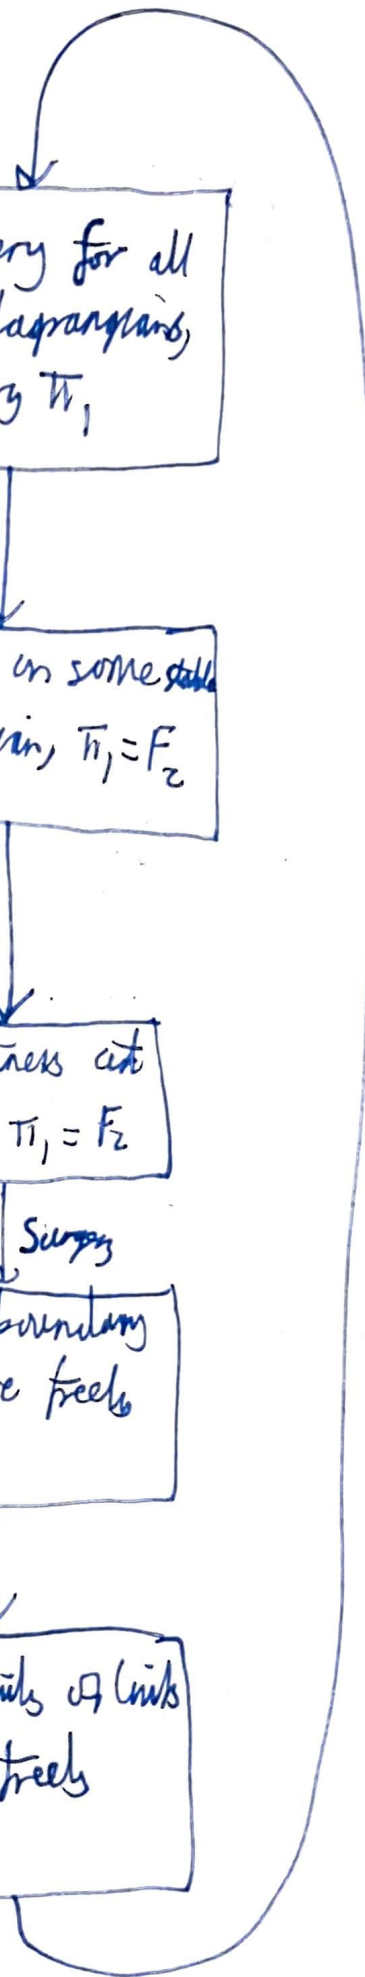 ery for all
lagrangians,
g π₁
in some stable
ian, π₁ = F₂
ness at
π₁ = F₂
Surgery
boundary
e freely
of links
freely